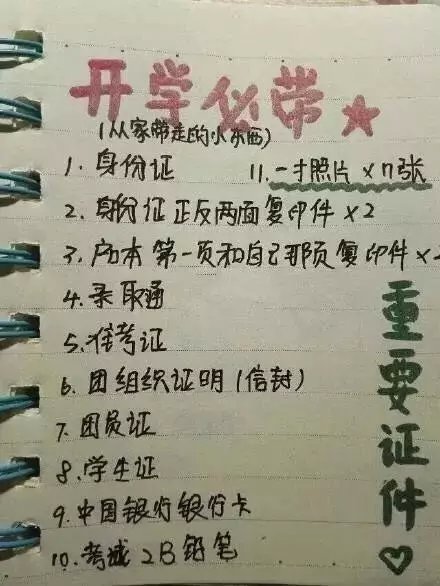 开学必带
(从家带走的小东西)
1.身份证
11.一寸照片×n张
2.身份证正反两面复印件×2
3.户口本第一页和自己那页复印件×2
4.录取通
5.准考证
6.团组织证明(信封)
7.团员证
8.学生证
9.中国银行银行卡
10.考试2B铅笔
重要证件